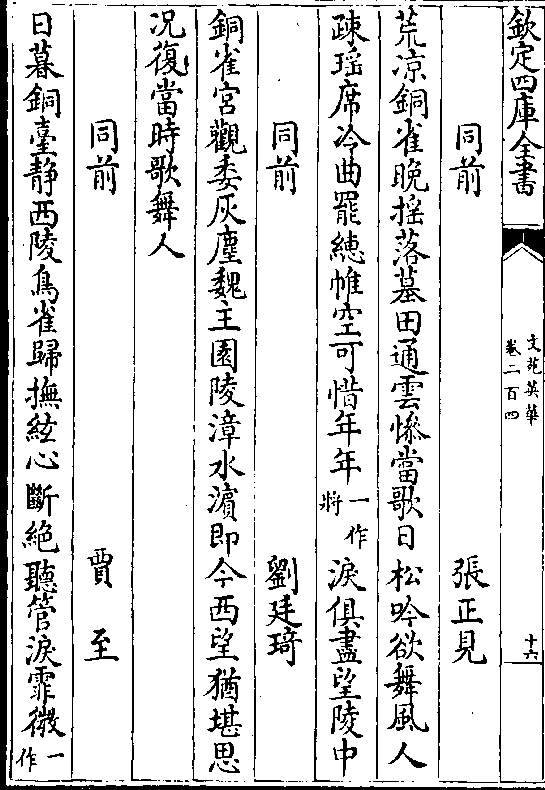 欽定四庫全書
文苑英華
卷二百四
十六
同前 張正見
荒凉銅雀晚揺落墓田通雲慘當歌日松吟欲舞風人
疎瑶席冷曲罷繐帷空可惜年年一作將淚俱盡望陵中
同前 劉廷琦
銅雀宫觀委灰塵魏主園陵漳水濵即今西望猶堪思
况復當時歌舞人
同前 賈至
日暮銅臺静西陵鳥雀歸撫絃心斷絶聽管淚霏微一作